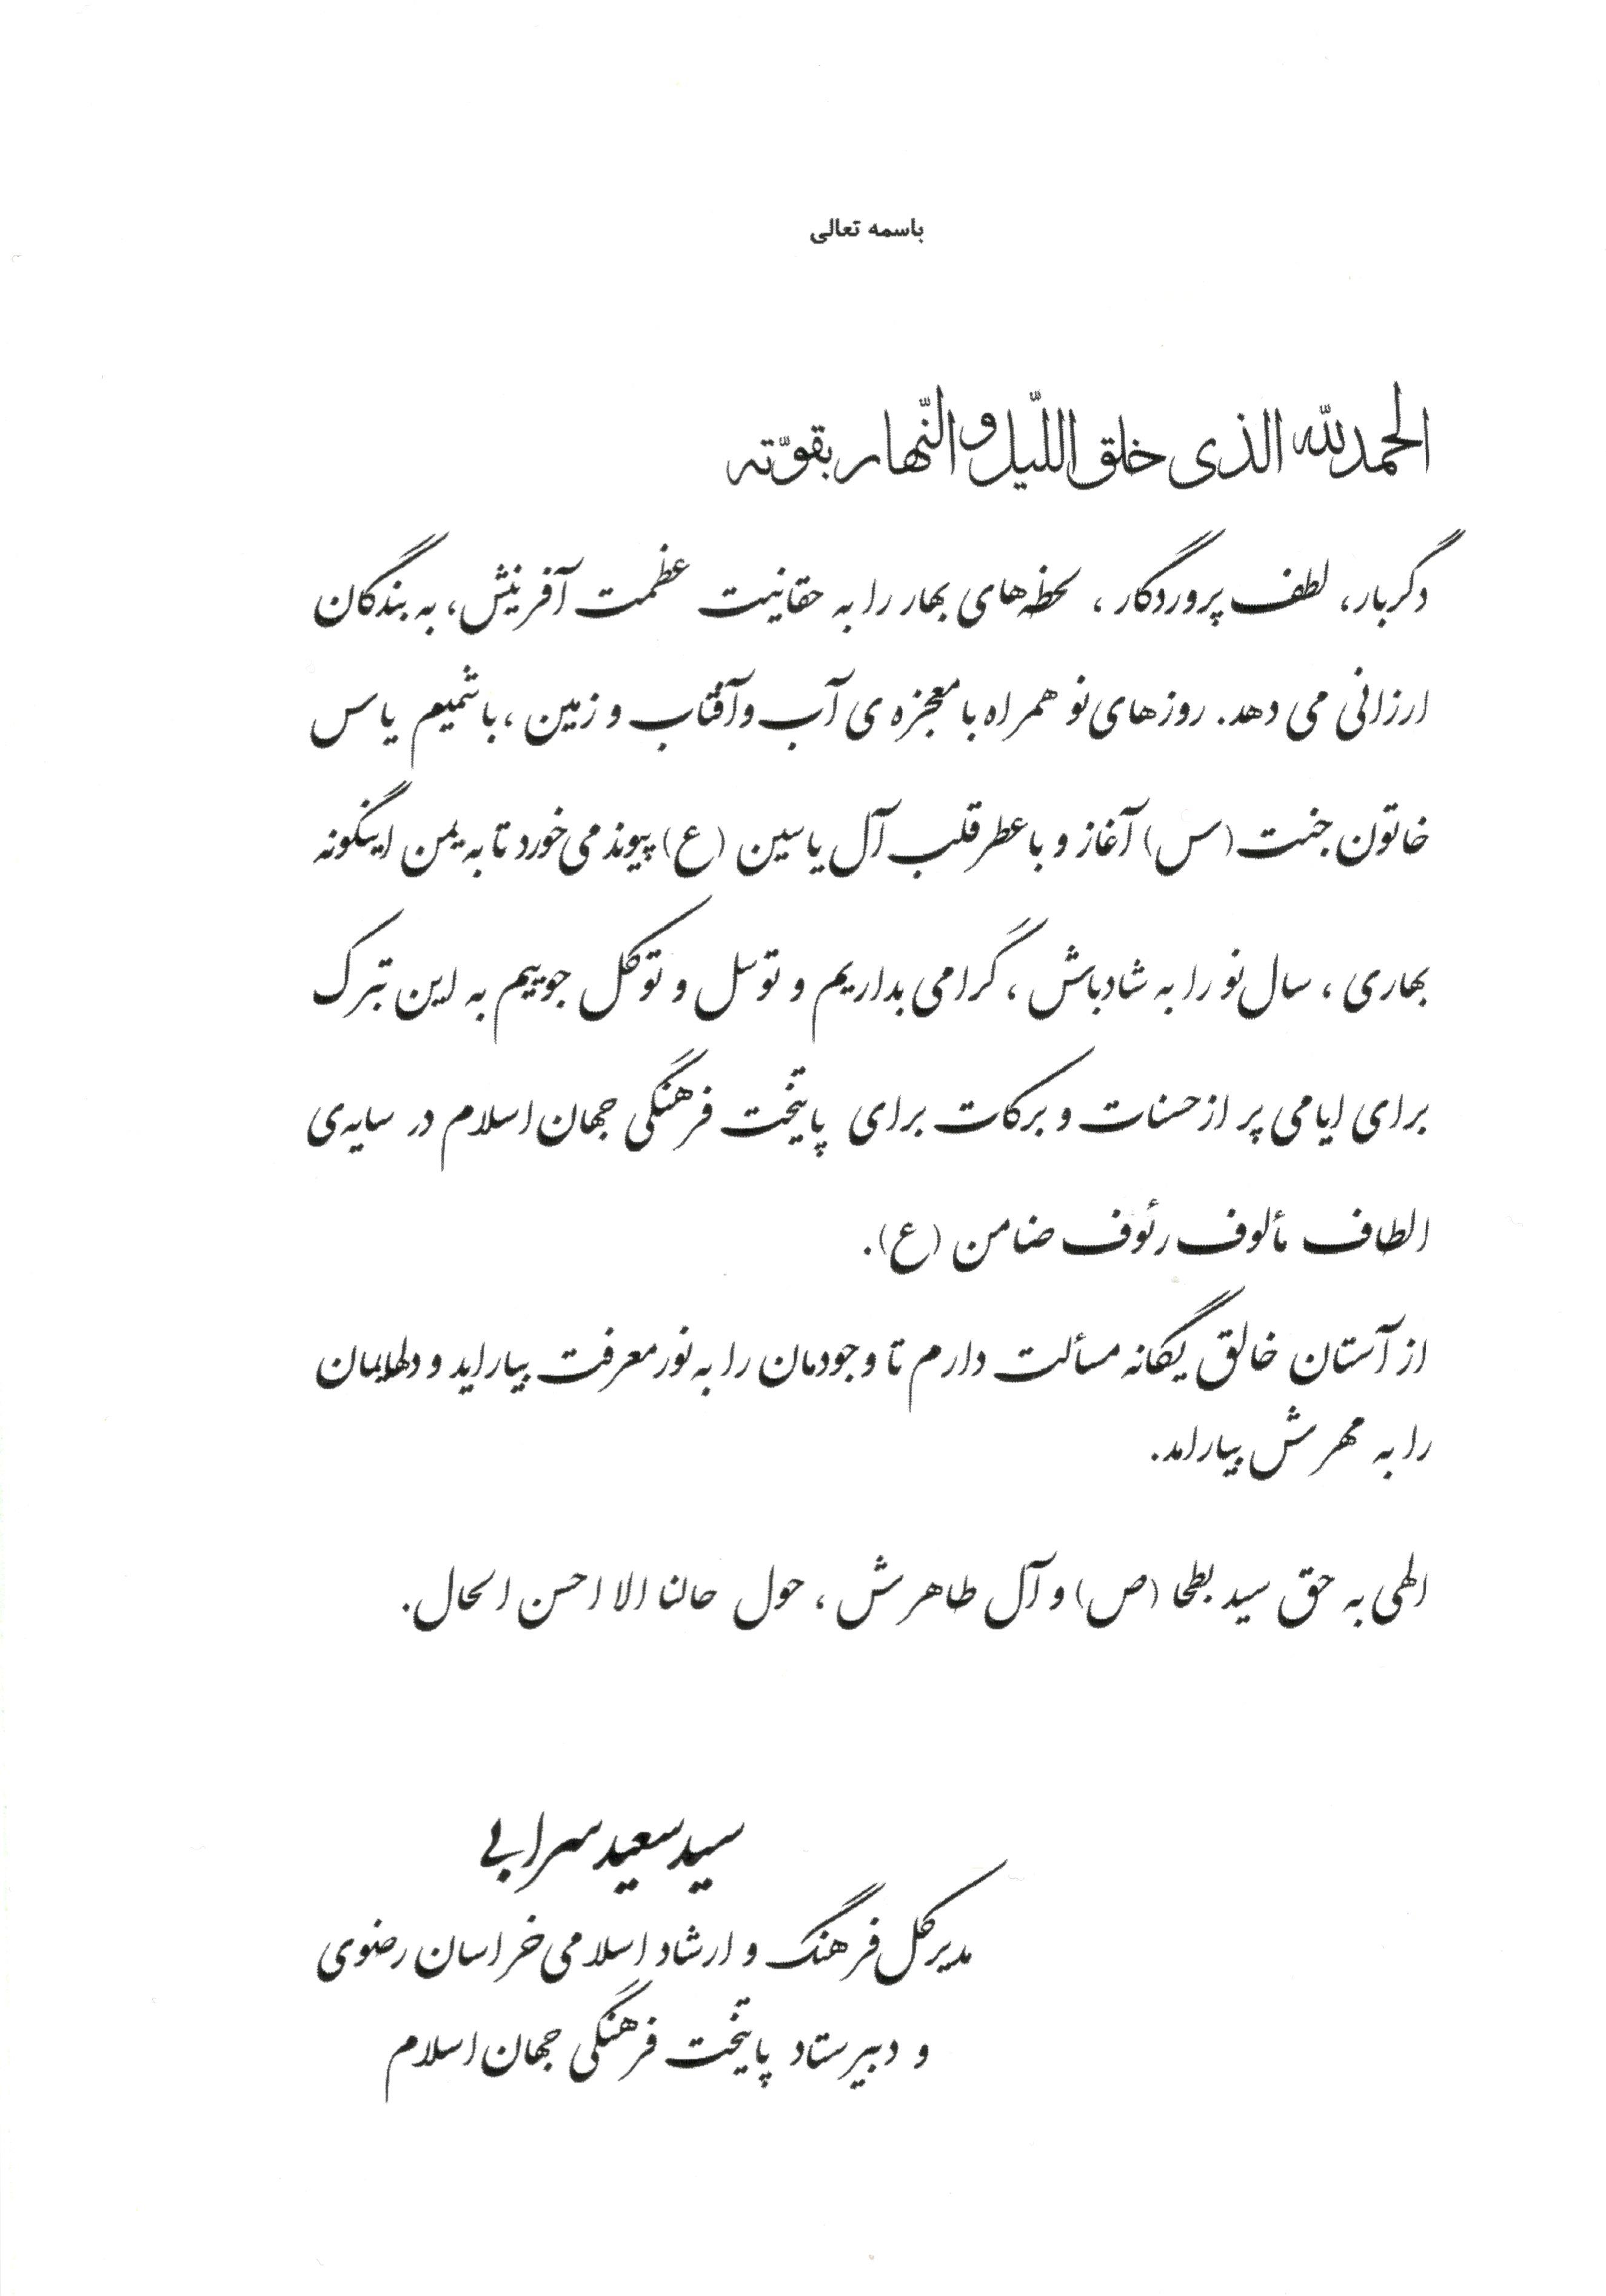 باسمه تعالی
الحمدلله الذی خلق اللّیل و النّهار بقوّته
دگربار، لطف پروردگار، لحظه‌های بهار را به حقانیت عظمت آفرینش، به بندگان
ارزانی می دهد. روزهای نو همراه با معجزه ی آب و آفتاب و زمین ، با شمیم یاس
خاتون جنت (س) آغاز و با عطر قلب آل یاسین (ع) پیوند می‌خورد تا به یمن اینگونه
بهاری ، سال نو را به شادباش ، گرامی بداریم و توسل و توکل جوییم به این تبرک
برای ایامی پر از حسنات و برکات برای پایتخت فرهنگی جهان اسلام در سایه‌ی
الطاف مألوف رئوف ضامن (ع).
از آستان خالق یگانه مسألت دارم تا وجودمان را به نور معرفت بیاراید و دلهایمان
را به مهرش بیارامد.
الهی به حق سید بطحا (ص) و آل طاهرش ، حول حالنا الا احسن الحال.
سید سعید سرابی
مدیرکل فرهنگ و ارشاد اسلامی خراسان رضوی
و دبیر ستاد پایتخت فرهنگی جهان اسلام